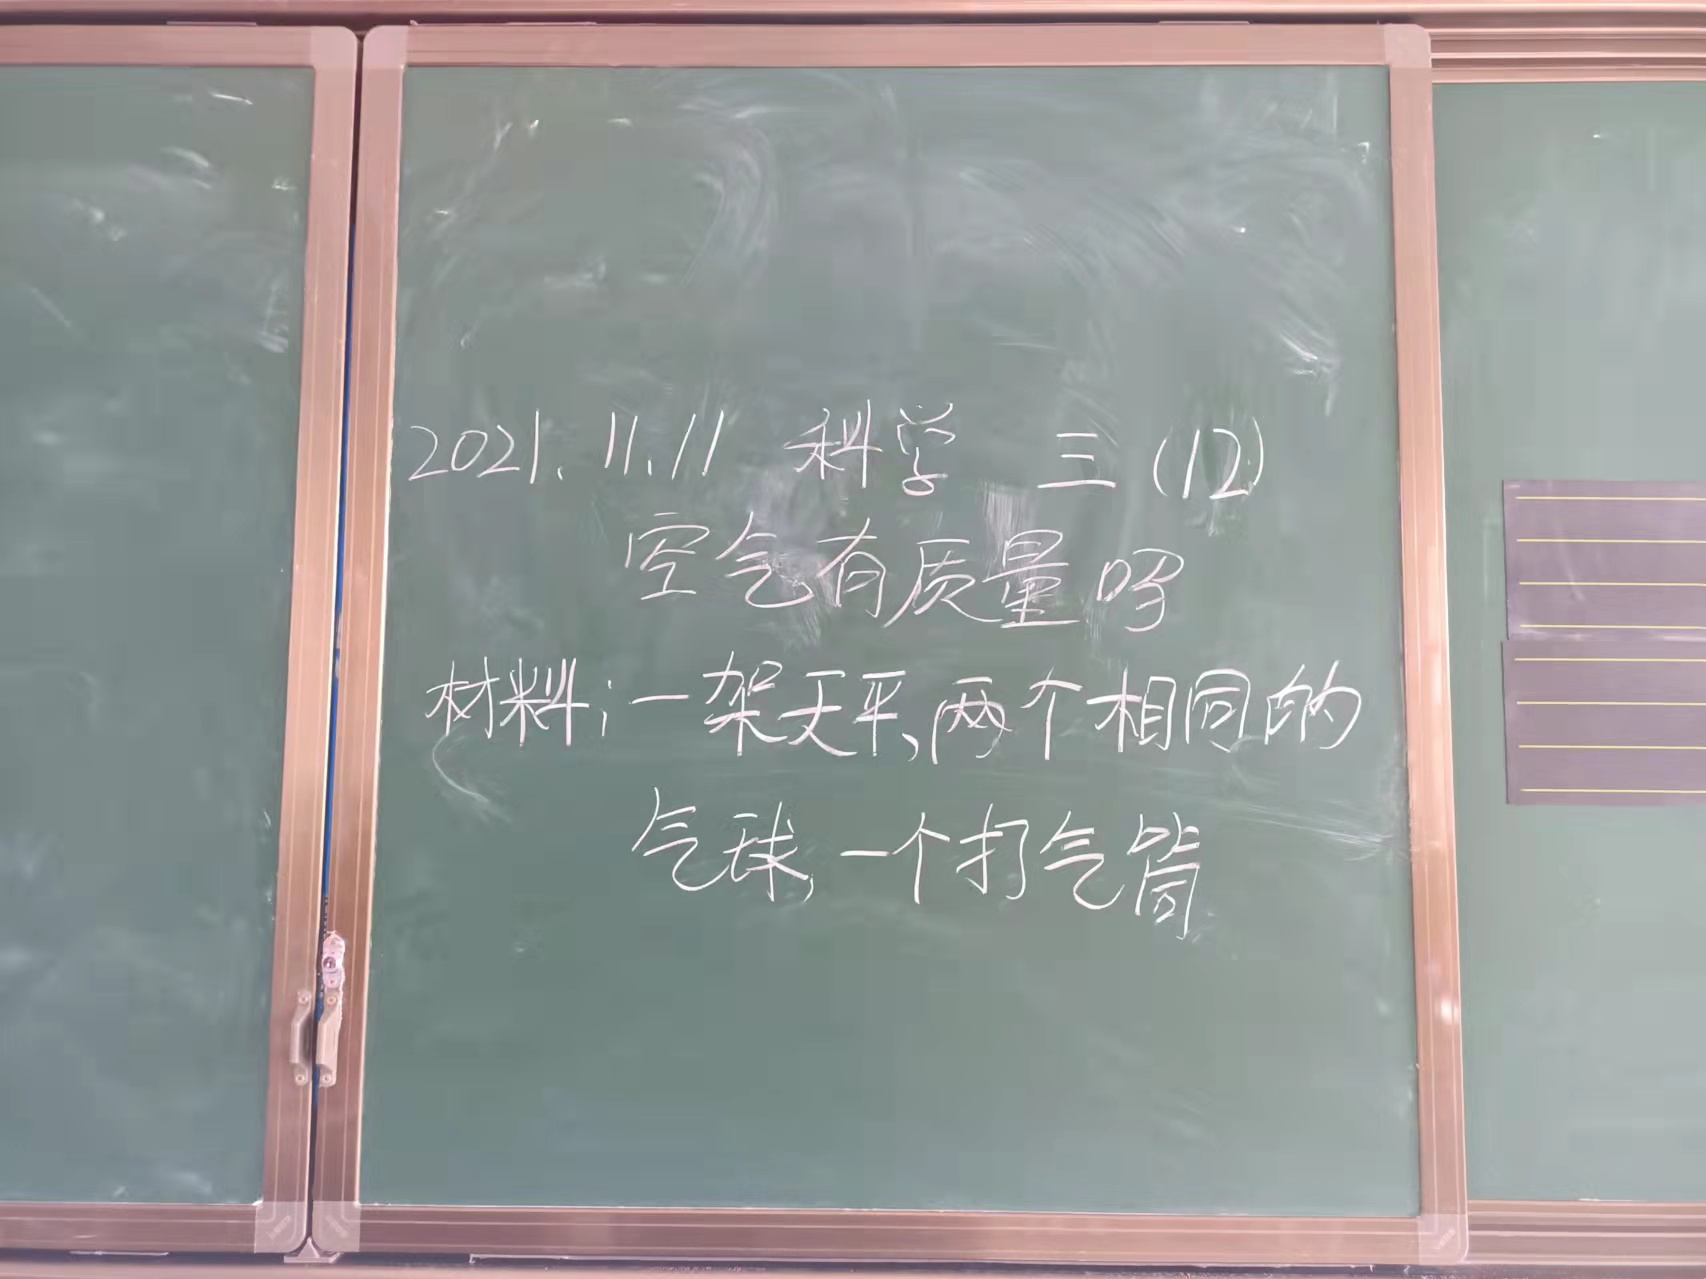 2021.11.11 科学 三(12)
空气有质量吗
材料:一架天平,两个相同的
气球,一个打气筒